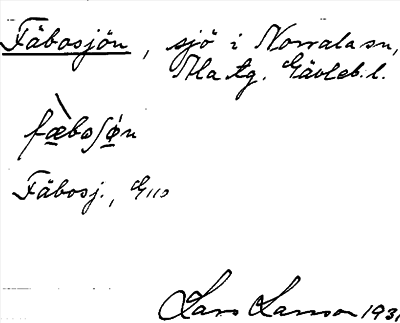 Fäbosjön, sjö i Norrala sn,
Ala tg. Gävleb. l.
fæ̀boʃøn
Fäbosj., G110
Lars Larsson 1931